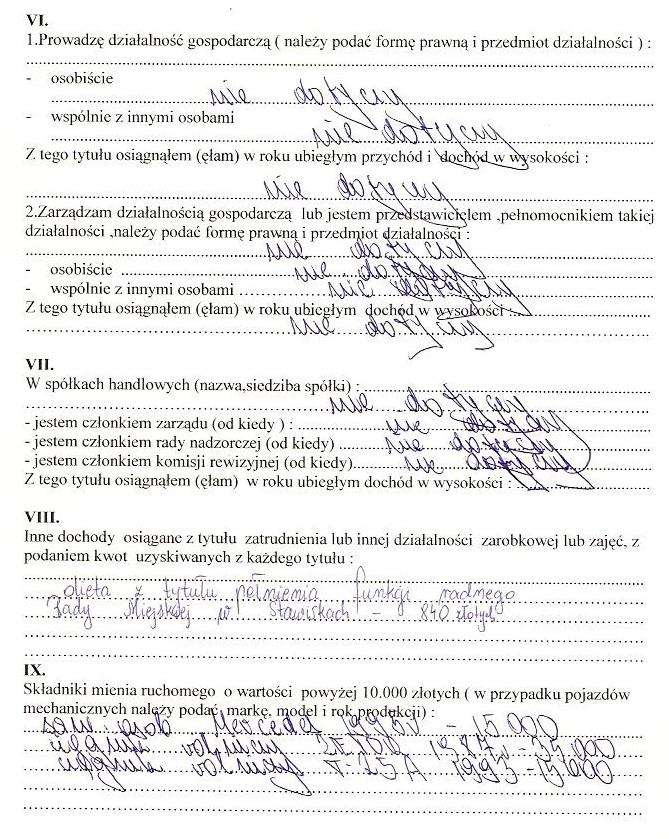 VI.
1.Prowadzę działalność gospodarczą ( należy podać formę prawną i przedmiot działalności ) :
- osobiście
nie dotyczy
- wspólnie z innymi osobami
nie dotyczy
Z tego tytułu osiągnąłem (ęłam) w roku ubiegłym przychód i dochód w wysokości :
nie dotyczy
2.Zarządzam działalnością gospodarczą lub jestem przedstawicielem ,pełnomocnikiem takiej
działalności ,należy podać formę prawną i przedmiot działalności :
nie dotyczy
- osobiście nie dotyczy
- wspólnie z innymi osobami nie dotyczy
Z tego tytułu osiągnąłem (ęłam) w roku ubiegłym dochód w wysokości :
nie dotyczy
VII.
W spółkach handlowych (nazwa,siedziba spółki) :
nie dotyczy
- jestem członkiem zarządu (od kiedy ) : nie dotyczy
- jestem członkiem rady nadzorczej (od kiedy) nie dotyczy
- jestem członkiem komisji rewizyjnej (od kiedy) nie dotyczy
Z tego tytułu osiągnąłem (ęłam) w roku ubiegłym dochód w wysokości :
VIII.
Inne dochody osiągane z tytułu zatrudnienia lub innej działalności zarobkowej lub zajęć, z
podaniem kwot uzyskiwanych z każdego tytułu :
dieta z tytułu pełnienia funkcji radnego
Rady Miejskiej w Stawiskach - 840 złotych
IX.
Składniki mienia ruchomego o wartości powyżej 10.000 złotych ( w przypadku pojazdów
mechanicznych należy podać markę, model i rok produkcji) :
sam. osob Mercedes - 15 000
ciągnik rolniczy 1987r - 35 000
ciągnik rolniczy T-25A 1993 - 15 000